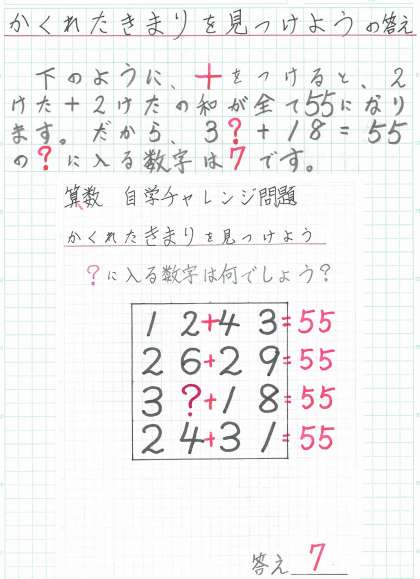 かくれたきまりを見つけようの答え
下のように、＋をつけると、2
けた＋2けたの和が全て55になり
ます。だから、3？＋18＝55
の？に入る数字は7です。
算数　自学チャレンジ問題
かくれたきまりを見つけよう
？に入る数字は何でしょう？
1 2＋4 3＝55
2 6＋2 9＝55
3 ？＋1 8＝55
2 4＋3 1＝55
答え 7